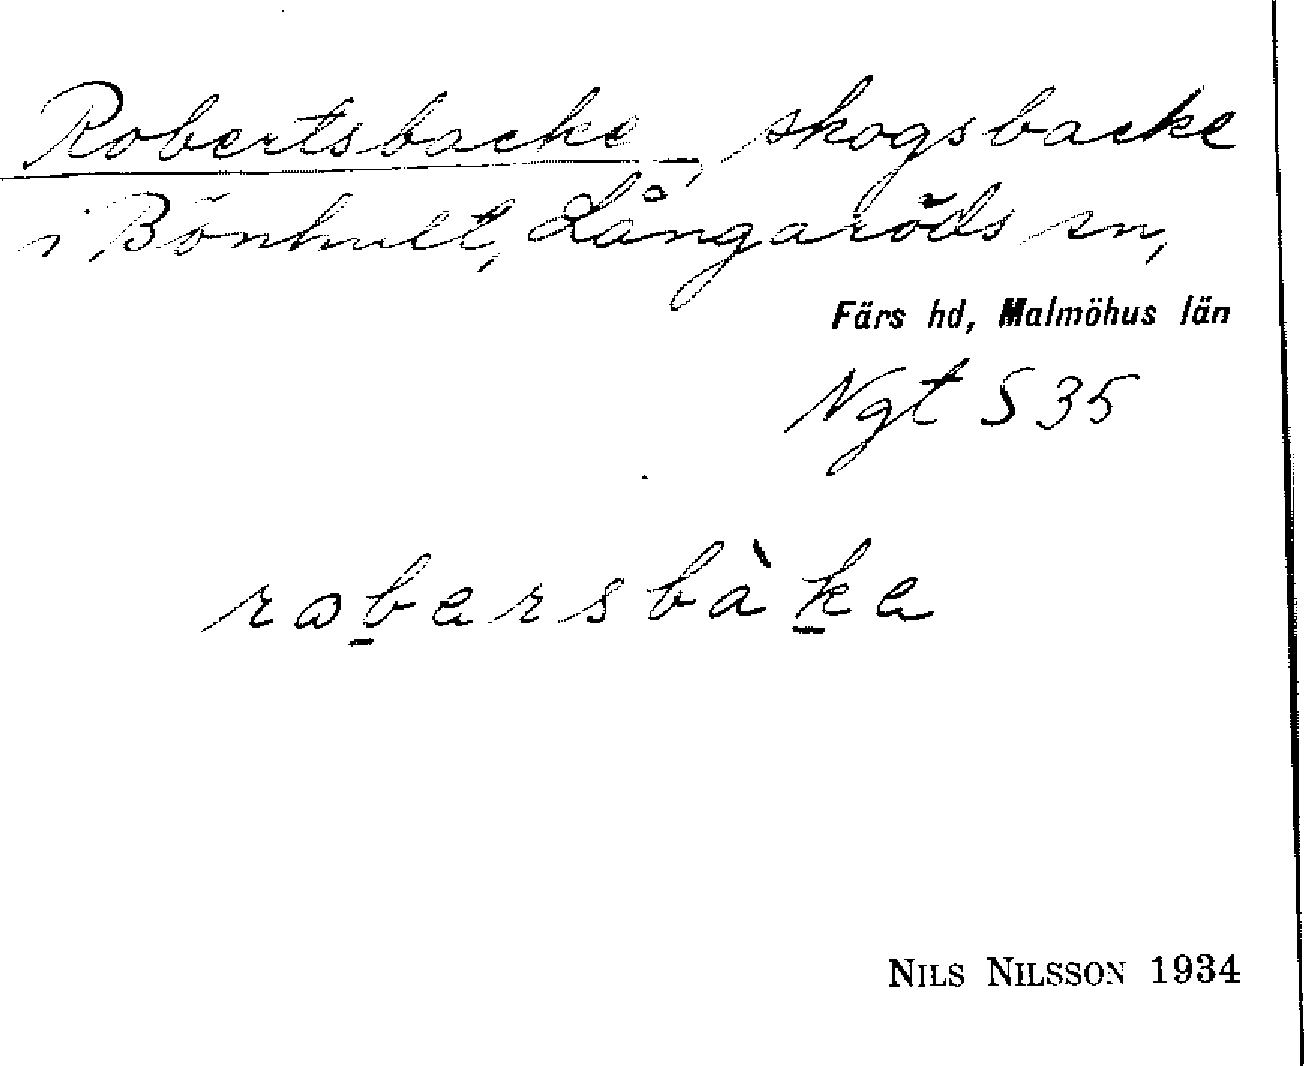 Robertsbacke, skogsbacke
i Bönhult, Långaröds sn,
Färs hd, Malmöhus län
Ngt S 35
robersbàke
NILS NILSSON 1934